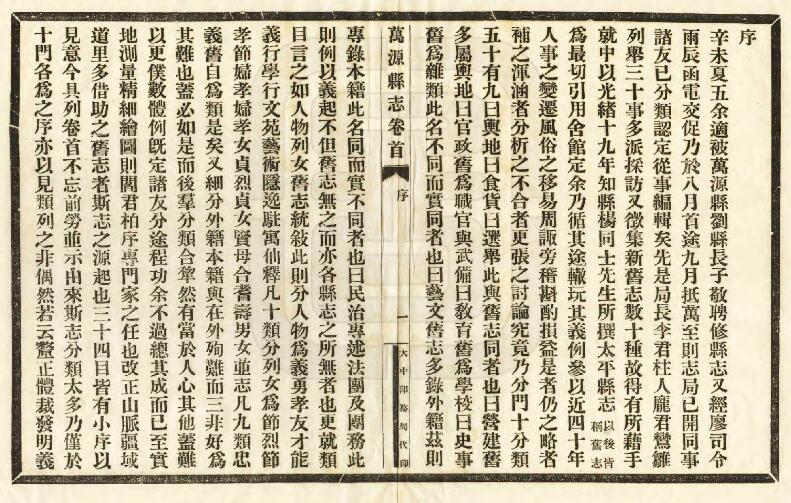 序
辛未夏五余適被萬源縣劉縣長子敬聘修縣志又經廖司令
雨辰函電交促乃於八月首途九月抵萬至則志局已開同事
諸友已分類認定從事編輯矣先是局長李君柱人龐君鸞雛
列舉三十事多派採訪又徵集新舊志數十種故得有所藉手
就中以光緒十九年知縣楊同士先生所撰太平縣志以後皆稱舊志
為最切引用舍館定余乃循其途轍玩其義例參以近四十年
人事之變遷風俗之移易周諏旁稽斟酌損益是者仍之略者
補之渾涵者分析之不合者更張之討論究竟乃分門十分類
五十有九曰輿地曰食貨曰選舉此與舊志同者也曰營建舊
多屬輿地曰官政舊為職官與武備曰敎育舊為學校曰史事
舊為雜類此名不同而實同者也曰藝文舊志多錄外籍茲則
萬源縣志卷首
序
一
大中印務局代印
專錄本籍此名同而實不同者也曰民治專述法團及團務此
則例以義起不但舊志無之而亦各縣志之所無者也更就類
目言之如人物列女舊志統敍此則分人物為義勇孝友才能
義行學行文苑藝術隱逸駐寓仙釋凡十類分列女為節烈節
孝節婦孝婦孝女貞烈貞女賢母合耆壽男女並志凡九類忠
義舊自為類是矣又細分外籍本籍與在外殉難而三非好為
其難也蓋必如是而後羣分類合犂然有當於人心其他蓋難
以更僕數體例旣定諸友分途程功余不過總其成而已至實
地測量精細繪圖則閻君柏序專門家之任也改正山脈疆域
道里多借助之舊志者斯志之源起也三十四目皆有小序以
見意今具列卷首不忘前勞並示由來斯志分類太多乃僅於
十門各為之序亦以見類列之非偶然若云釐正體裁發明義